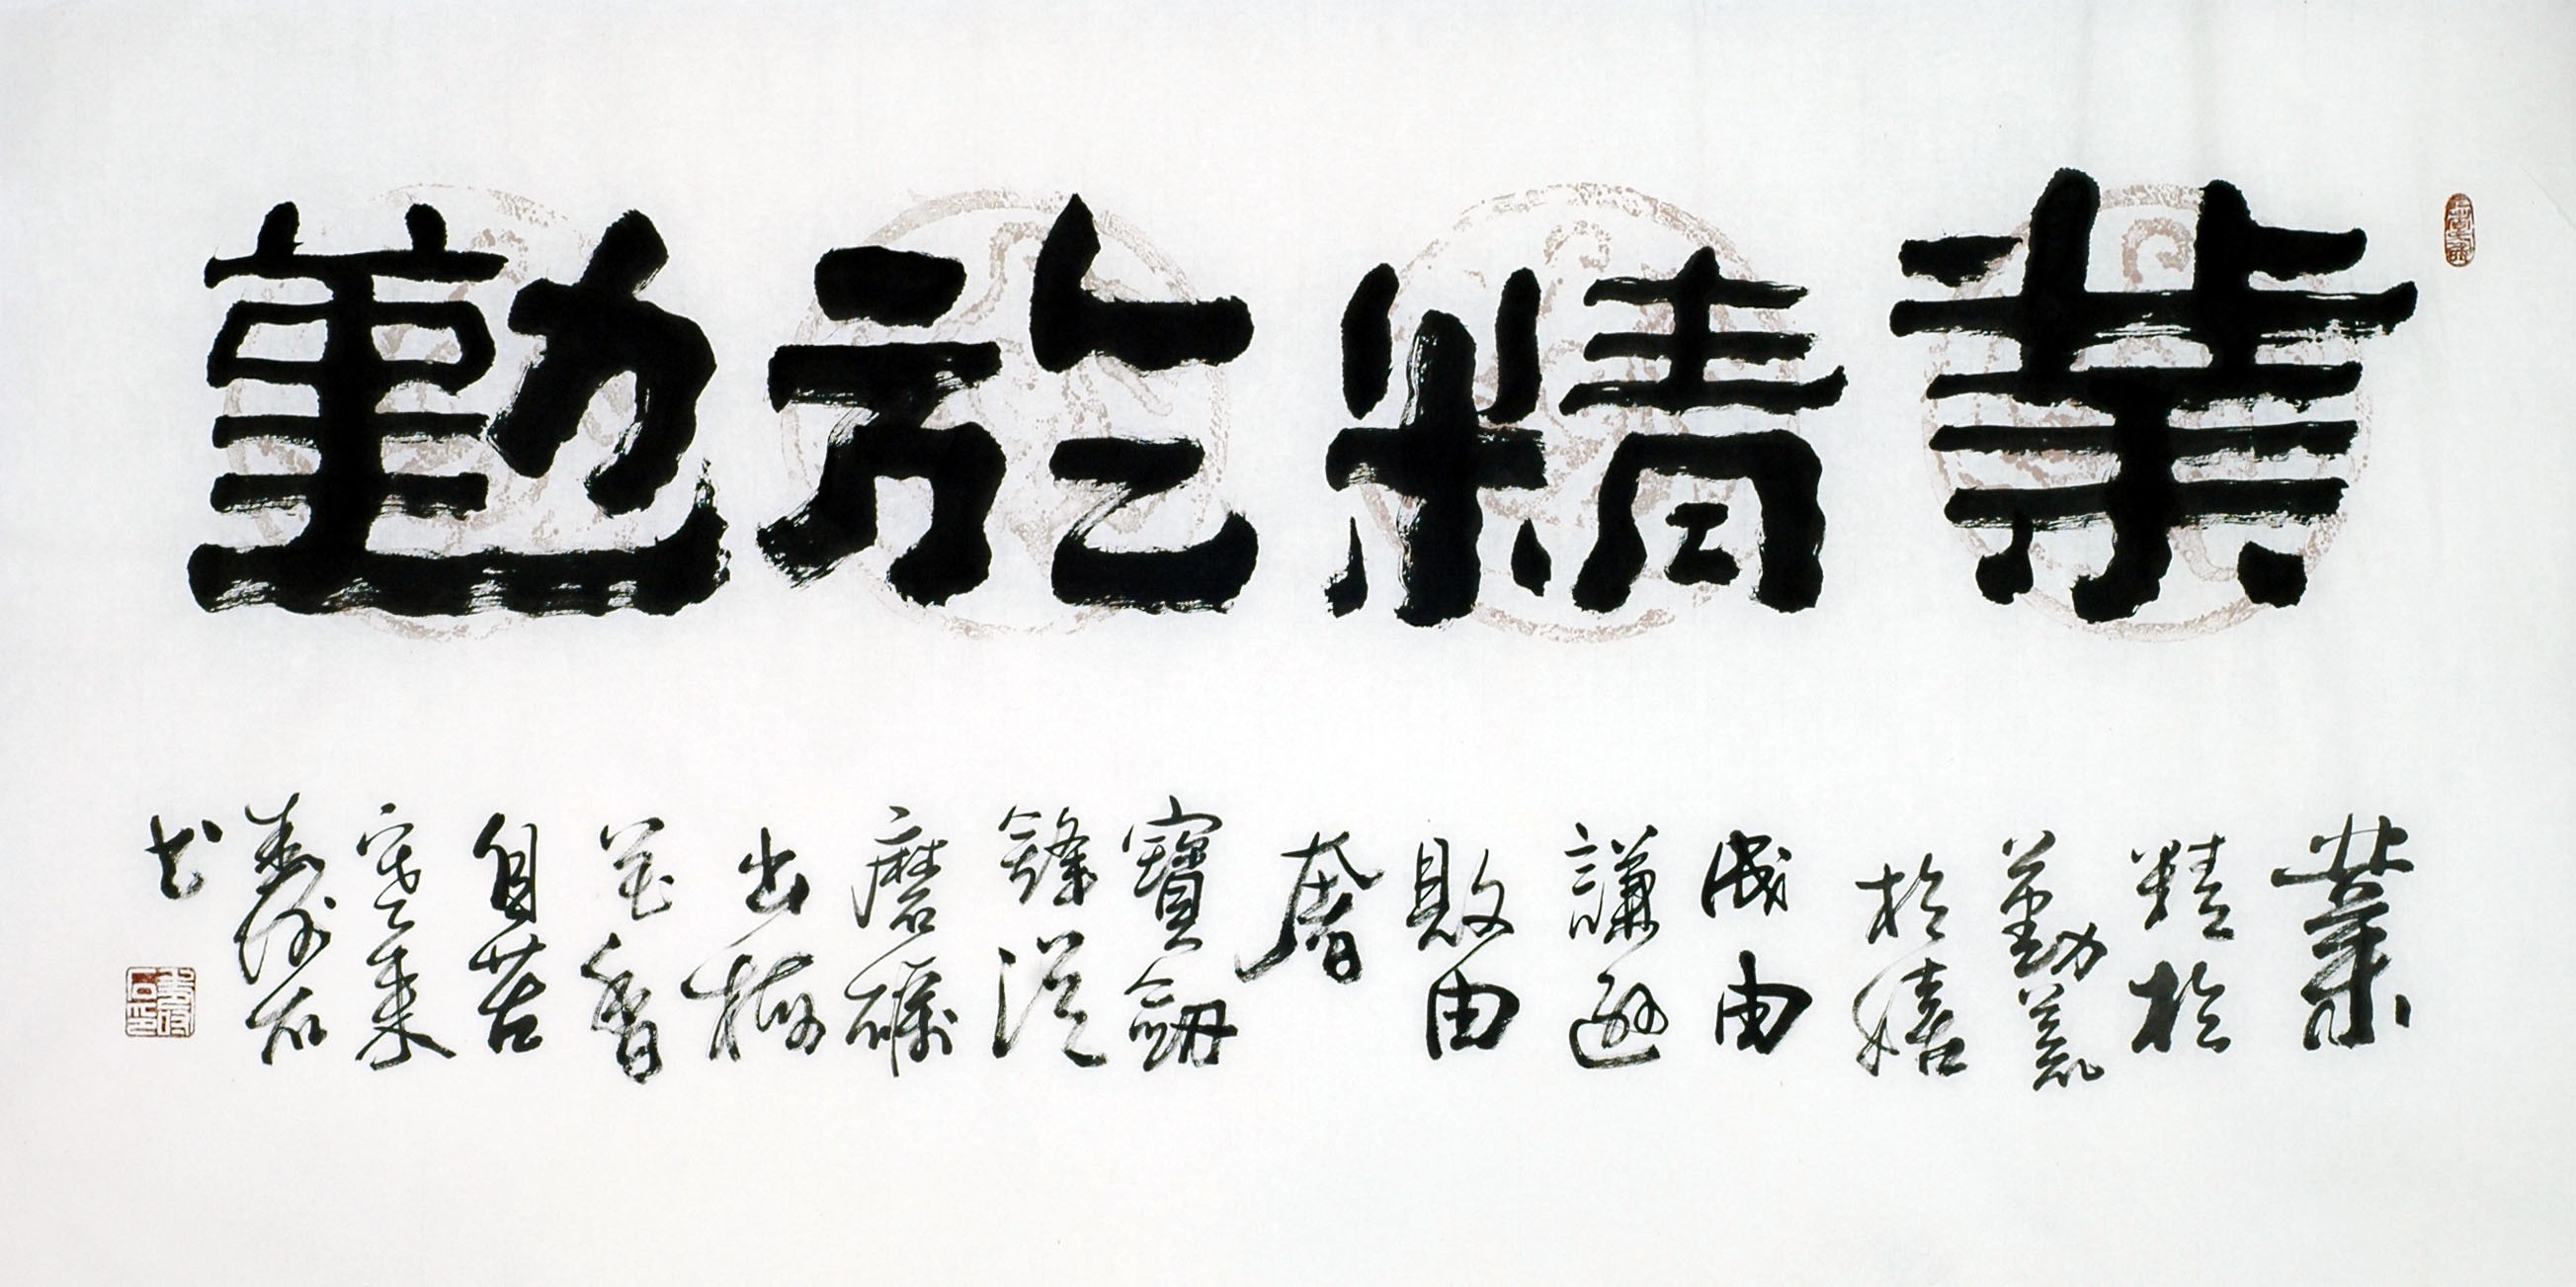 業精於勤
業
精於
勤荒
於嬉
成由
謙遜
敗由
奢
寶劍
鋒從
磨礪
出梅
花香
自苦
寒來
书